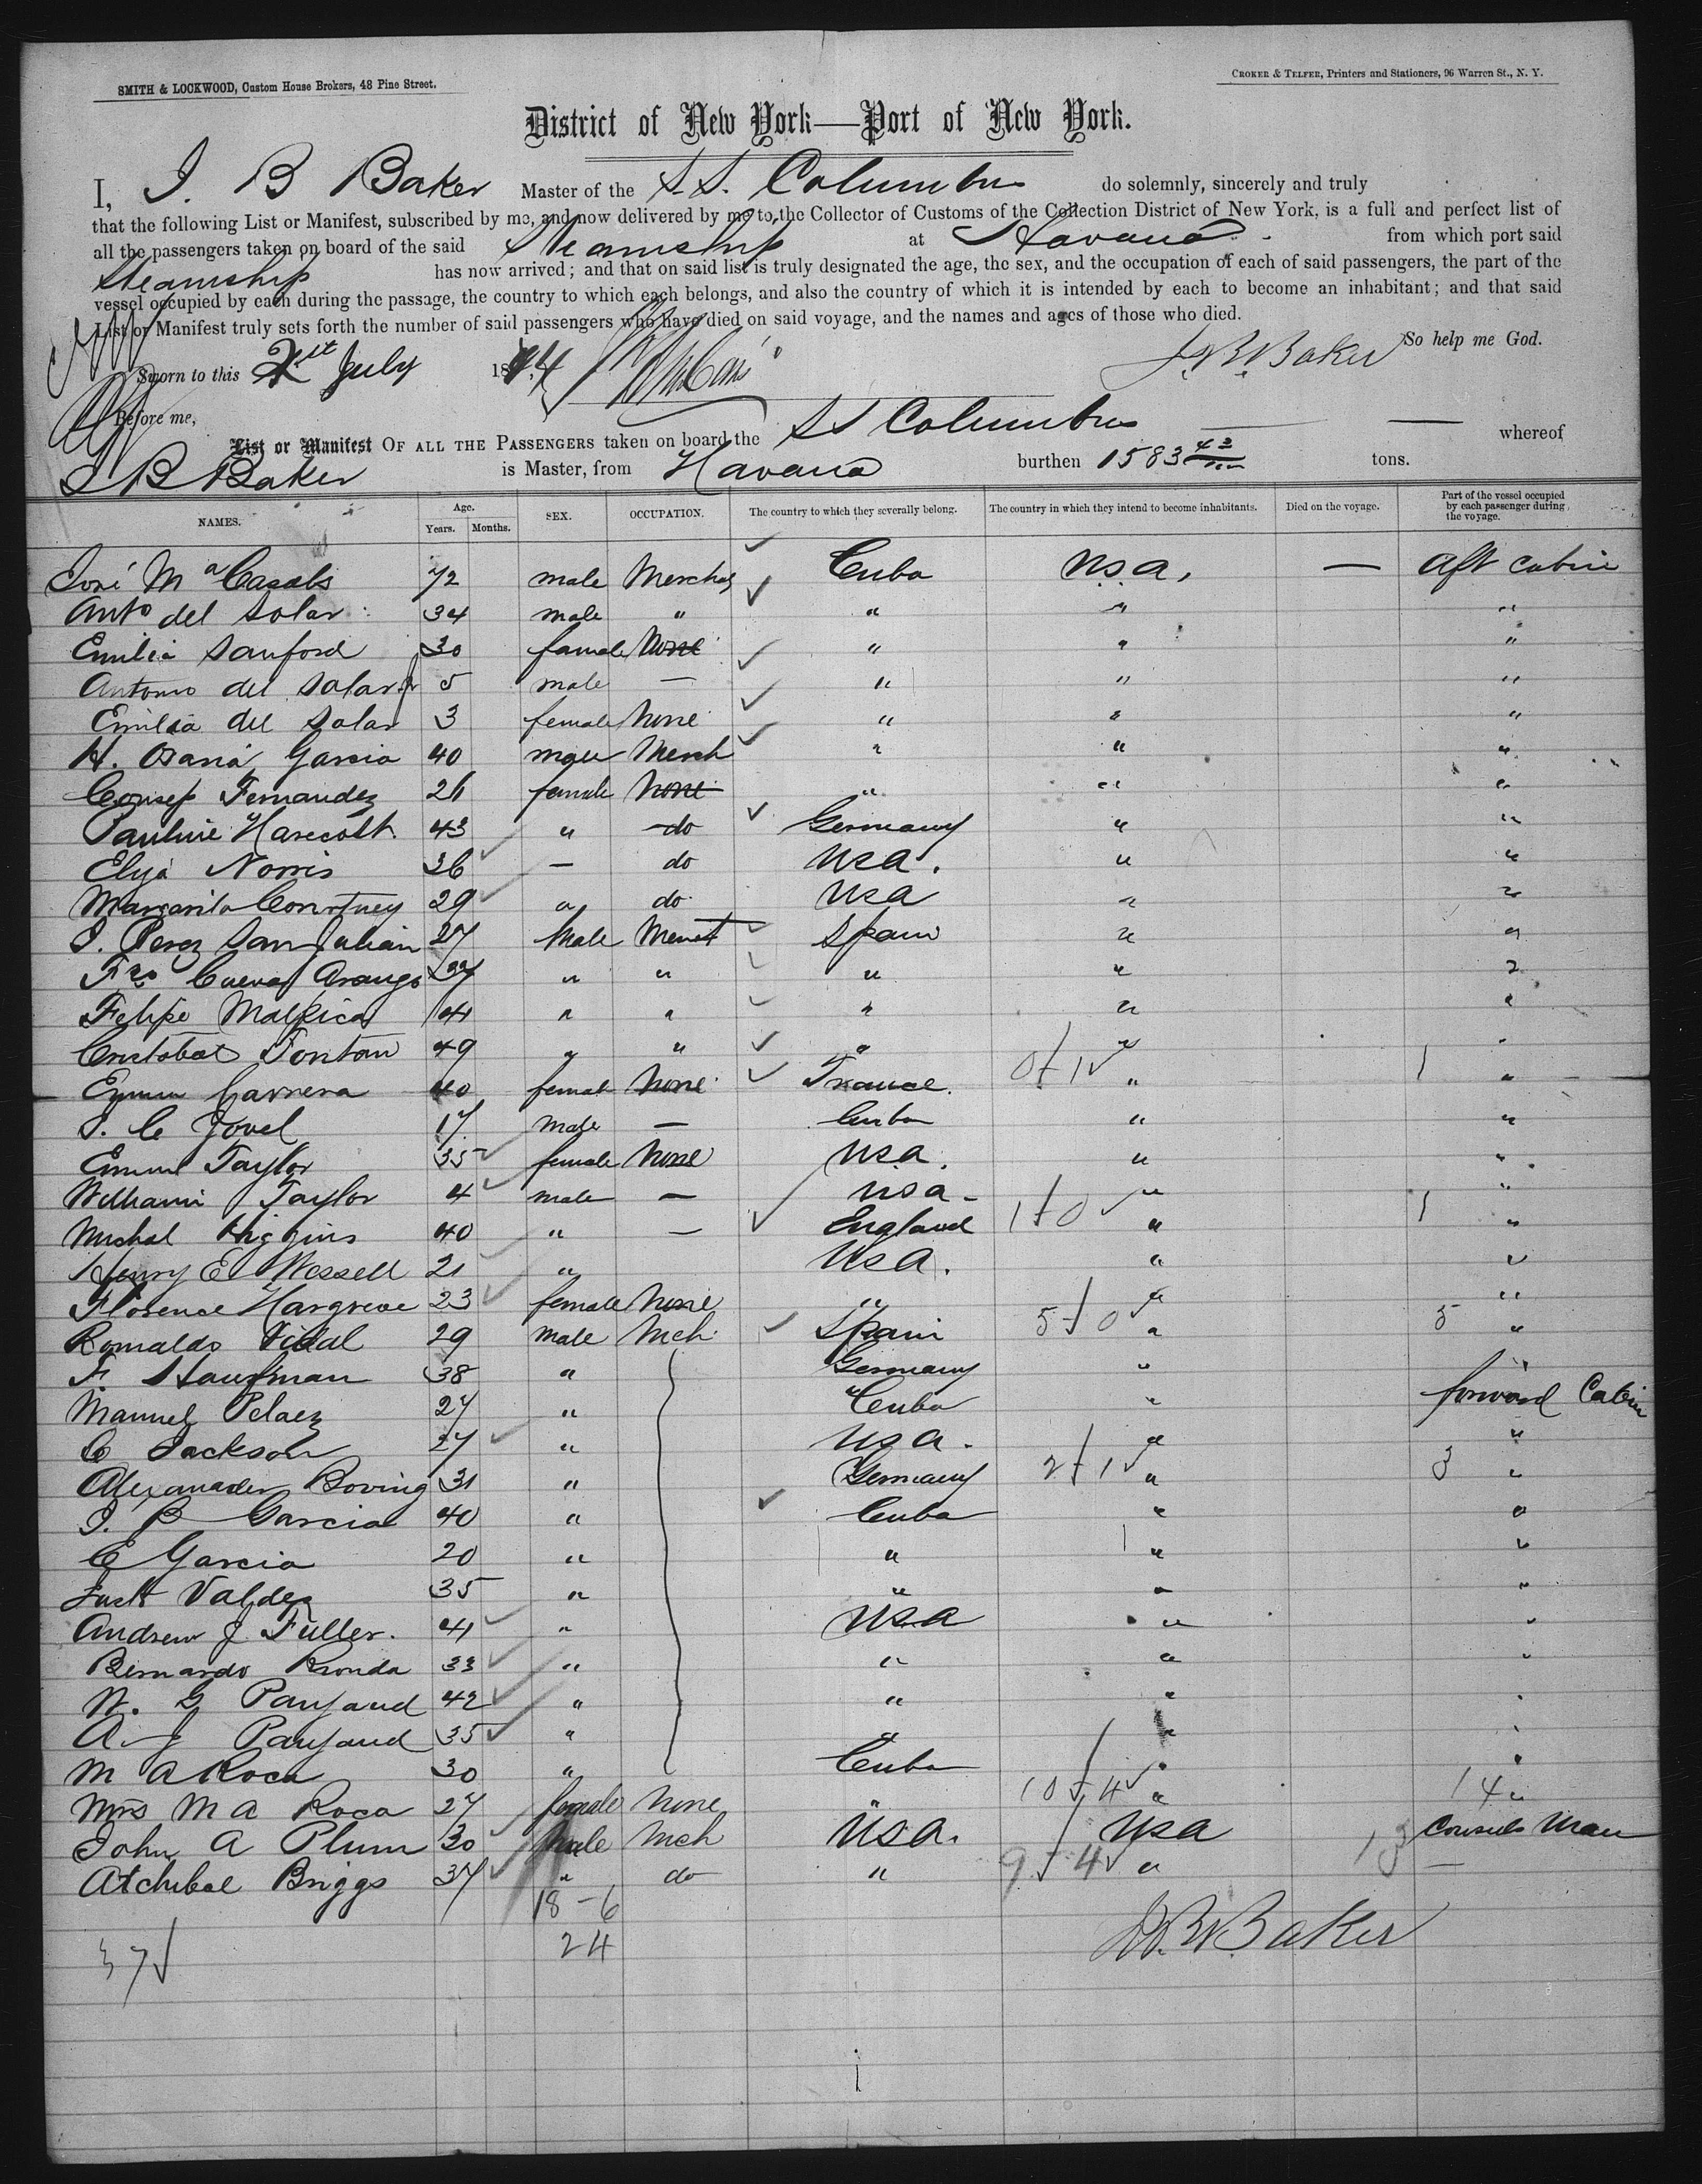 SMITH & LOCKWOOD, Custom House Brokers, 48 Pine Street.
CROKER & TELFER, Printers and Stationers, 96 Warren St., N. Y.
District of New York—Port of New York.
I, J. B Baker Master of the S.S. Columbus do solemnly, sincerely and truly
that the following List or Manifest, subscribed by me, and now delivered by me to the Collector of Customs of the Collection District of New York, is a full and perfect list of
all the passengers taken on board of the said Steamship at Havana from which port said
Steamship has now arrived; and that on said list is truly designated the age, the sex, and the occupation of each of said passengers, the part of the
vessel occupied by each during the passage, the country to which each belongs, and also the country of which it is intended by each to become an inhabitant; and that said
List or Manifest truly sets forth the number of said passengers who have died on said voyage, and the names and ages of those who died.
So help me God.
Sworn to this 21st July 1874 J. B. Baker
Before me,
List or Manifest OF ALL THE PASSENGERS taken on board the SS Columbus whereof
J B Baker is Master, from Havana burthen 1583 43/100 tons.
NAMES. Age. Years. Months. SEX. OCCUPATION. The country to which they severally belong. The country in which they intend to become inhabitants. Died on the voyage. Part of the vessel occupied by each passenger during the voyage.
José Ma Casals 72 male Merchan Cuba USA. — aft cabin
Anto del Solar 34 male " " " "
Emilia Sanford 30 female None " " "
Antonio del Solar Jr 5 male — " " "
Emilia del Solar 3 female None " " "
H. Osana Garcia 40 male Merch " " "
Consep Fernandez 26 female None " " "
Pauline Harecolt 43 " do Germany " "
Elija Norris 36 — do USA. " "
Margarita Courtney 29 " do USA " "
J. Perez San Julian 27 Male Mercht Spain " "
Fco Cueva Arango 37 " " " " "
Felipe Malpica 44 " " " " "
Cristobal Tontan 49 " " " " "
Emma Carrera 40 female None France 0+1 " 1 "
J. C Jovel 17 male — Cuba " "
Emma Taylor 35 female None USA. " "
William Taylor 4 male — USA - " "
Michal Higgins 40 " — England 1+0 " 1 "
Henry E Wessell 21 " USA. " "
Florence Hargreve 23 female None " " "
Romaldo Vidal 29 male Mch Spain 5+0 " 5 "
F. Haufman 38 " Germany " "
Manuel Pelaez 27 " Cuba " forward Cabin
C Jackson 27 " USA. " "
Alexander Boving 31 " Germany 2+1 " 3 "
J. B Garcia 40 " Cuba " "
C Garcia 20 " " " "
Valdez 35 " " " "
Andrew J. Fuller. 41 " USA " "
Bernardo Ronda 33 " " " "
W. G Payaud 42 " " " "
A. J Payaud 35 " " " "
M A Roca 30 " Cuba " "
Mrs M A Roca 27 female None " 10+4 " 14 "
John A Plum 30 Male Mch USA. USA Consuls Man
Atchibal Briggs 37 " do " 9+4 " 13 —
18 - 6
24
J. B. Baker
37